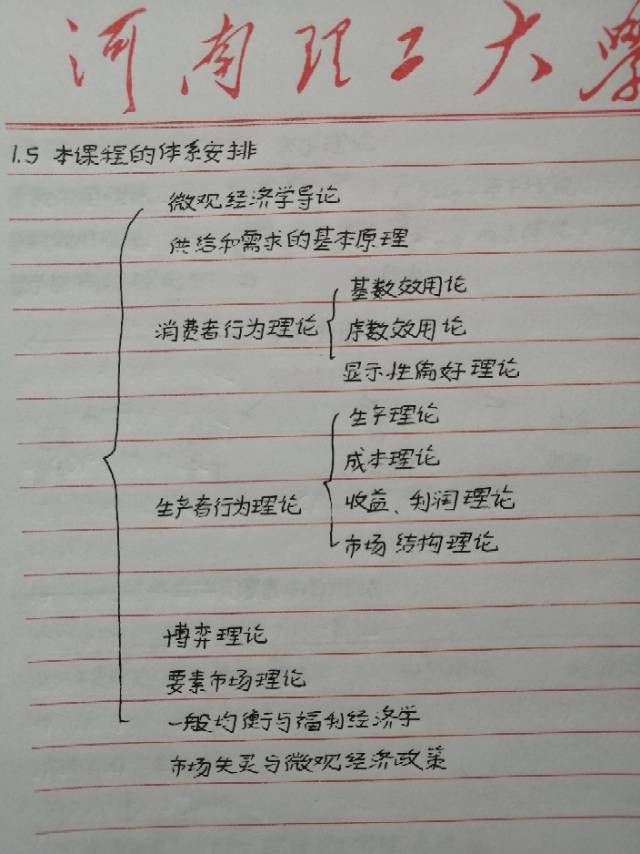 河南理工大學
1.5 本课程的体系安排
微观经济学导论
供给和需求的基本原理
基数效用论
消费者行为理论
序数效用论
显示性偏好理论
生产理论
成本理论
生产者行为理论
收益、利润理论
市场结构理论
博弈理论
要素市场理论
一般均衡与福利经济学
市场失灵与微观经济政策